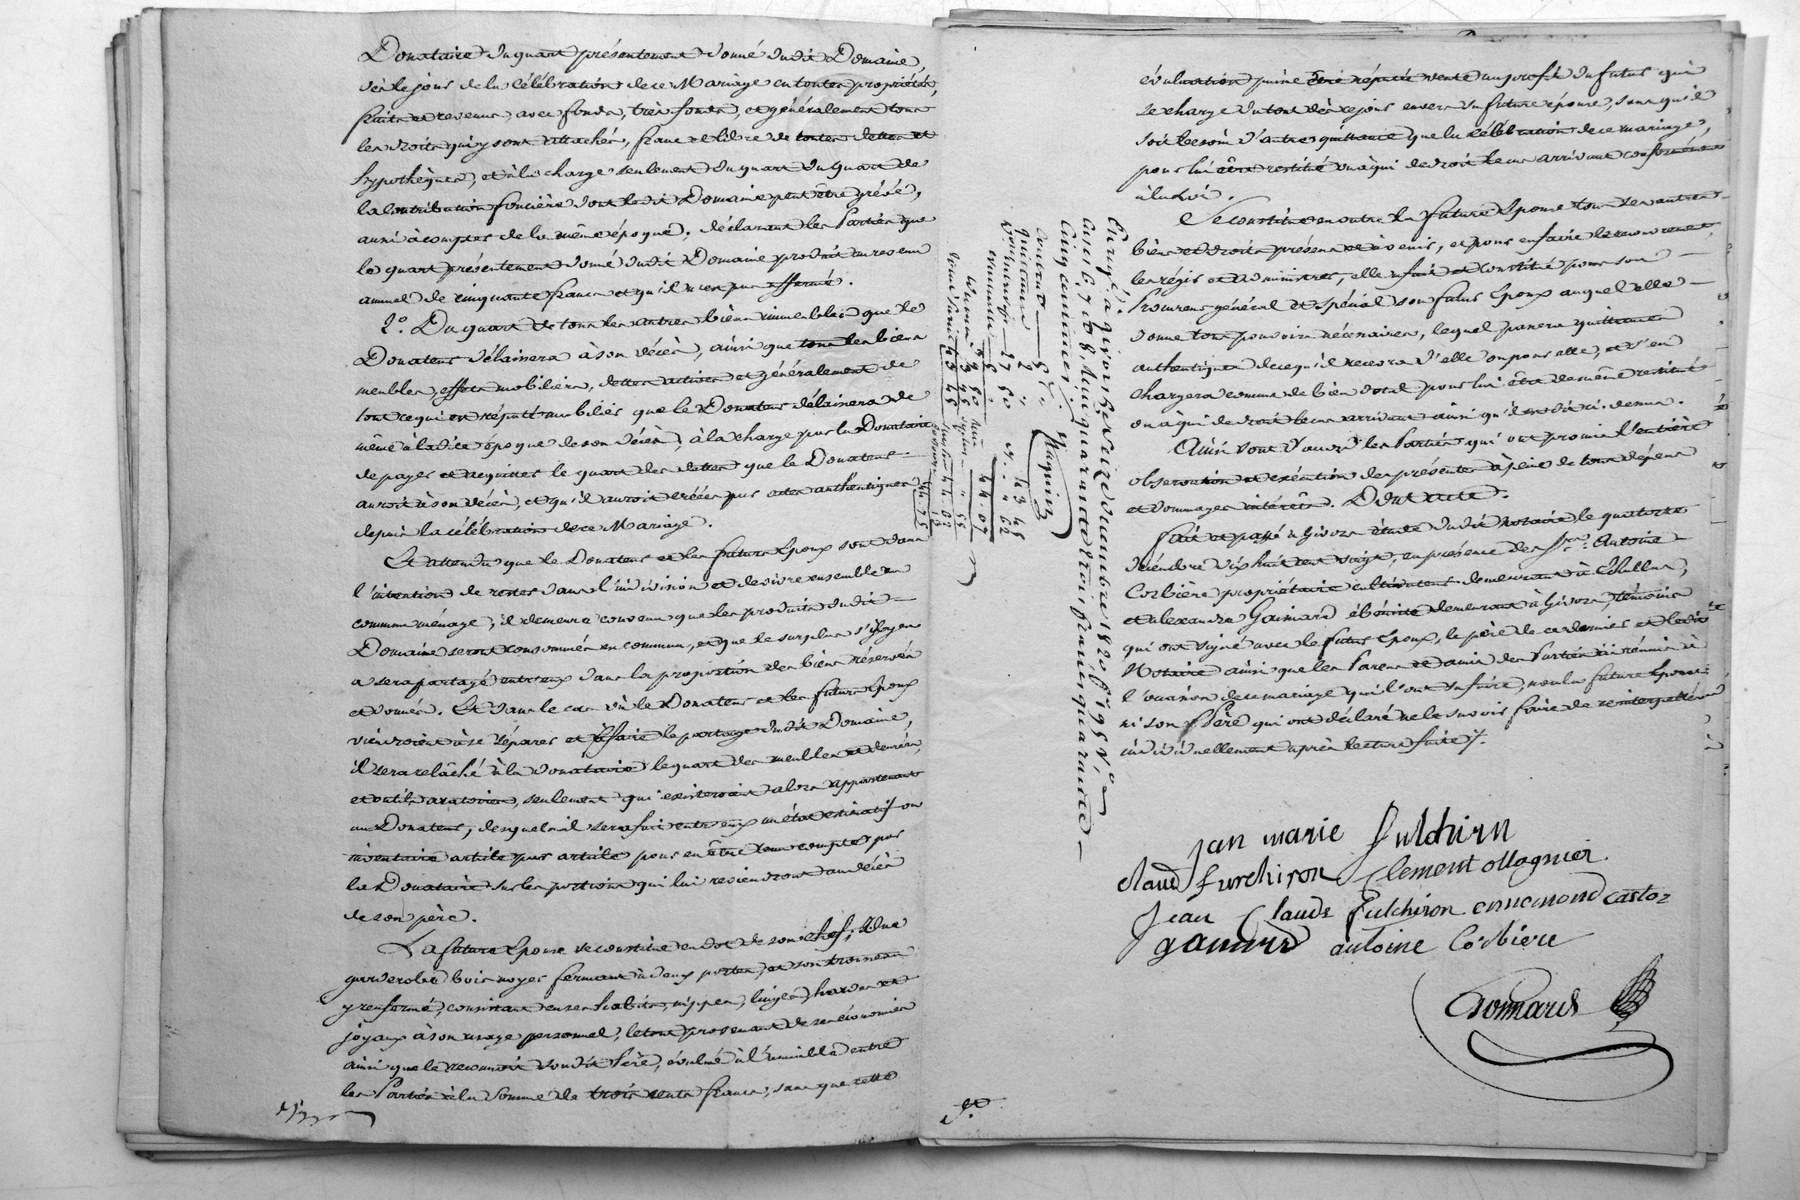 Donataire du quart présentement donné dudit Domaine,
dès le jour de la célébration de ce Mariage en toutes propriétés,
fruits et revenus avec fonds, très fonds, et généralement tous
les droits qui y sont attachés, franc et libre de toutes dettes et
hypothèques, et à la charge seulement du quart du quart de
la contribution foncière dont ledit Domaine peut être grévé,
aussi à compter de la même époque. déclarant les Parties que
le quart présentement donné dudit Domaine produit un revenu
annuel de cinquante francs et qu'il n'est pas affermé.
2.° Du quart de tous les autres biens immeubles que le
Donateur délaissera à son décès, ainsi que tous les biens
meubles, effets mobiliers, dettes actives et généralement de
tout ce qui est réputé mobilier que le Donateur délaissera de
même à ladite époque de son décès, à la charge par la Donataire
de payer et acquitter le quart des dettes que le Donateur
auroit à son décès, et qu'il auroit créées par actes authentiques
depuis la célébration de ce Mariage.
Et attendu que le Donateur et les futurs Epoux sont dans
l'intention de rester dans l'indivision et de vivre ensemble en
commun ménage, il demeure convenu que les produits dudit
Domaine seront consommés en commun, et que le surplus s'il y en
a sera partagé entr'eux dans la proportion des biens réservés
et donnés. Et dans le cas où le Donateur et les futurs Epoux
viendroient à se séparer et à faire le partage dudit Domaine,
il sera relâché à la donataire le quart des meubles et denrées
et outils aratoires, seulement qui existeroient alors appartenant
au Donateur, desquels il sera fait entr'eux un état estimatif ou
inventaire article par article pour en être tenu compte par
la Donataire sur les portions qui lui reviendront au décès
de son père.
La future Epouse se constitue en dot de son chef; Une
garderobe bois noyer fermant à deux portes, et son trousseau
y renfermé, consistant en ses habits, nippes, linges, hardes et
joyaux à son usage personnel, le tout provenant de ses économies
ainsi que le reconnoit sondit Père, évalué à l'amiable entre
les Parties à la Somme de trois cents francs; sans que cette
évaluation puisse être réputée vente au profit du futur qui
se charge du tout dès ce jour envers sa future épouse, sans qu'il
soit besoin d'autre quittance que la célébration de ce mariage,
pour lui être restitué ou à qui de droit le cas arrivant conformément
à la Loi.
Se constitue en outre la future Epouse tous ses autres
biens et droits présens et à venir, et pour en faire le recouvrement,
les régir et administrer, elle a fait et constitué pour son
Procureur général et spécial son futur Epoux auquel elle
donne tous pouvoirs nécessaires, lequel passera quittances
authentiques de ce qu'il recevra d'elle ou pour elle, et s'en
chargera comme de bien dotal pour lui être de même restitué
ou à qui de droit le cas arrivant ainsi qu'il est dit ci-dessus.
Ainsi sont d'accord les Parties qui ont promis l'entière
observation et exécution des présentes à peine de tous dépens
et dommages intérêts. Dont acte.
Fait et passé à Givors étude dudit notaire le quatorze
décembre dix huit cent vingt, en présence des Srs. Antoine
Corbière propriétaire cultivateur demeurant à Echallas,
et alexandre Gaimard ébéniste demeurant à Givors, témoins
qui ont signé avec le futur Epoux, le père de ce dernier et ledit
Notaire ainsi que les Parens et amis des Parties ici réunis à
l'occasion de ce mariage qui l'ont su faire, non la future Epouse
ni son Père qui ont déclaré ne le savoir faire de ce interpellés
individuellement après lecture faite /.
Jan marie fulchirn
claud furchiron Clement Magnier.
Jean Claude fulchiron ennemond castor
gaimard antoine Corbière
Enregistré à givors le Seize décembre 1820 f° 195 V.°
Cases 6, 7 et 8, Reçu quarante trois francs quarante
cinq centimes.